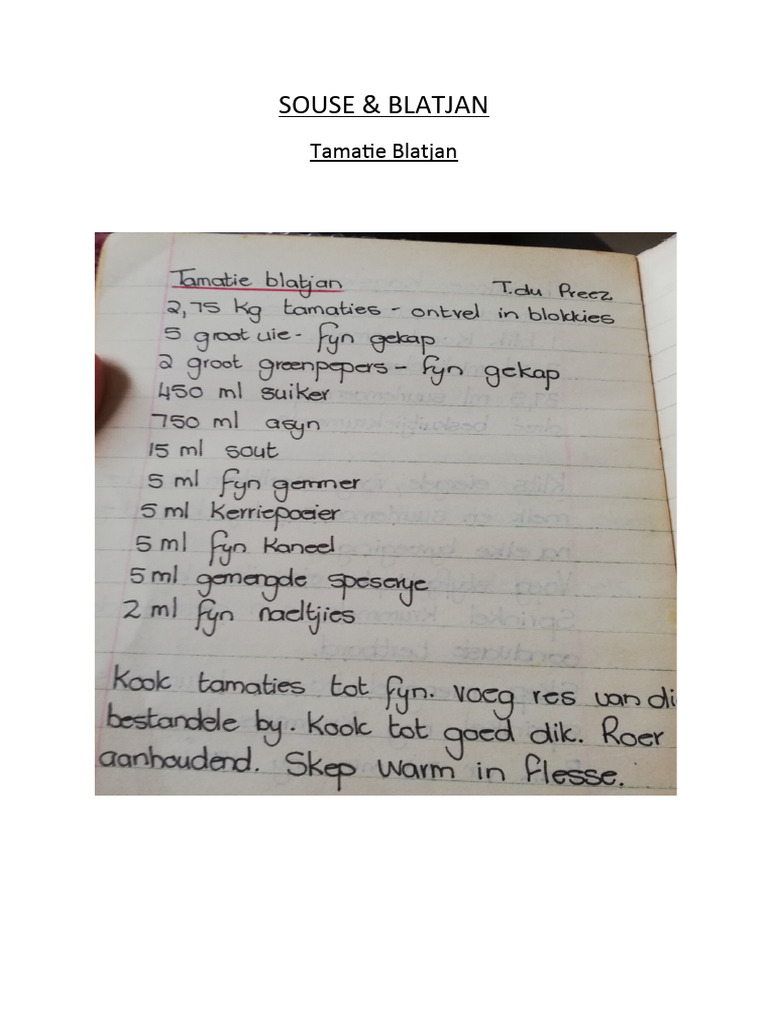 SOUSE & BLATJAN
Tamatie Blatjan
Tamatie blatjan T.du Preez
2,75 kg tamaties - ontvel in blokkies
5 groot uie - fyn gekap
2 groot greenpepers - fyn gekap
450 ml suiker
750 ml asyn
15 ml sout
5 ml fyn gemmer
5 ml Kerriepoeier
5 ml fyn Kaneel
5 ml gemengde speserye
2 ml fyn naeltjies
Kook tamaties tot fyn. Voeg res van di
bestandele by. Kook tot goed dik. Roer
aanhoudend. Skep warm in flesse.